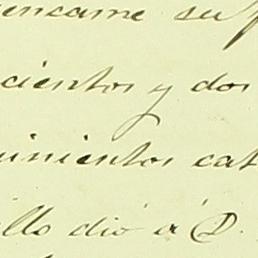 encame su
cientos y dos
uinientos cat
illo dió á D.